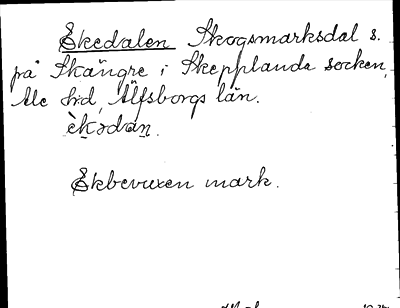 Ekedalen Skogsmarksdal s.
på Skängre i Skepplanda socken,
Ale hd, Älfsborgs län.
Ekbevuxen mark.